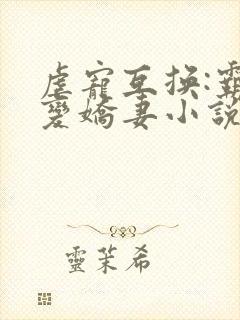 虐寵互換:霸
愛嬌妻小說
靈茉希